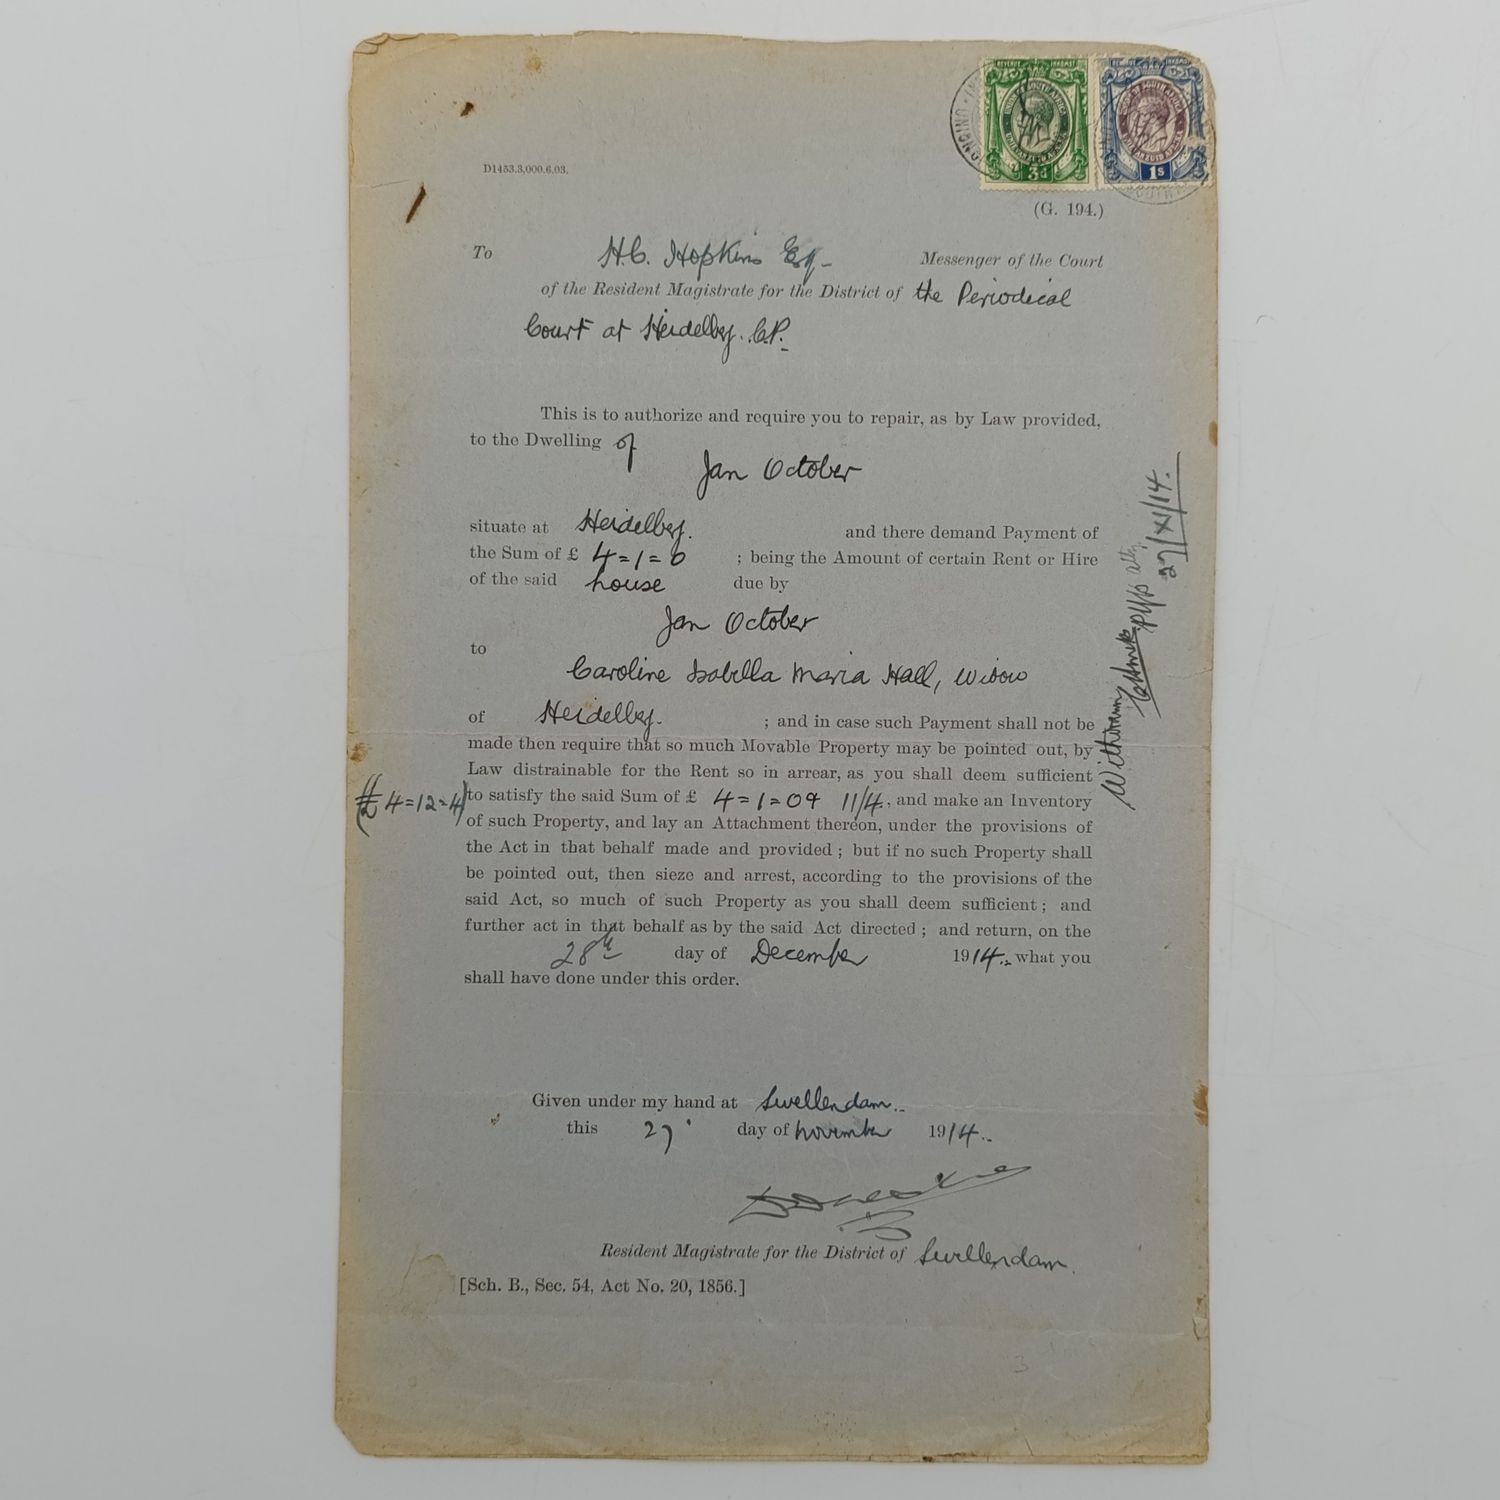 REVENUE INKOMST REVENUE INKOMST
UNION OF SOUTH AFRICA
3d 1s
D1453.3,000.6.03.
(G. 194.)
To H.C. Hopkins Esq- Messenger of the Court
of the Resident Magistrate for the District of the Periodical
Court at Heidelbg. C.P.
This is to authorize and require you to repair, as by Law provided,
to the Dwelling of
Jan October
situate at Heidelbg. and there demand Payment of
the Sum of £ 4=1=0 ; being the Amount of certain Rent or Hire
of the said house due by
Jan October
to
Caroline Isabella Maria Hall, Widow
of Heidelbg. ; and in case such Payment shall not be
made then require that so much Movable Property may be pointed out, by
Law distrainable for the Rent so in arrear, as you shall deem sufficient
(£4=12=4) to satisfy the said Sum of £ 4=1=0 & 11/4., and make an Inventory
of such Property, and lay an Attachment thereon, under the provisions of
the Act in that behalf made and provided ; but if no such Property shall
be pointed out, then sieze and arrest, according to the provisions of the
said Act, so much of such Property as you shall deem sufficient ; and
further act in that behalf as by the said Act directed ; and return, on the
28th day of December 1914.. what you
shall have done under this order.
Given under my hand at Swellendam..
this 27 day of November 1914..
Resident Magistrate for the District of Swellendam.
[Sch. B., Sec. 54, Act No. 20, 1856.]
Withdrawn
27/XI/14.